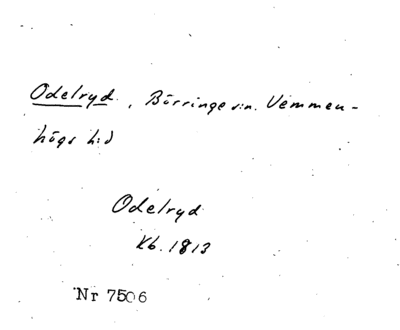 Odelryd., Börringe s:n. Vemmen-
högs h:d
Odelryd
Kb. 1813
Nr 7506